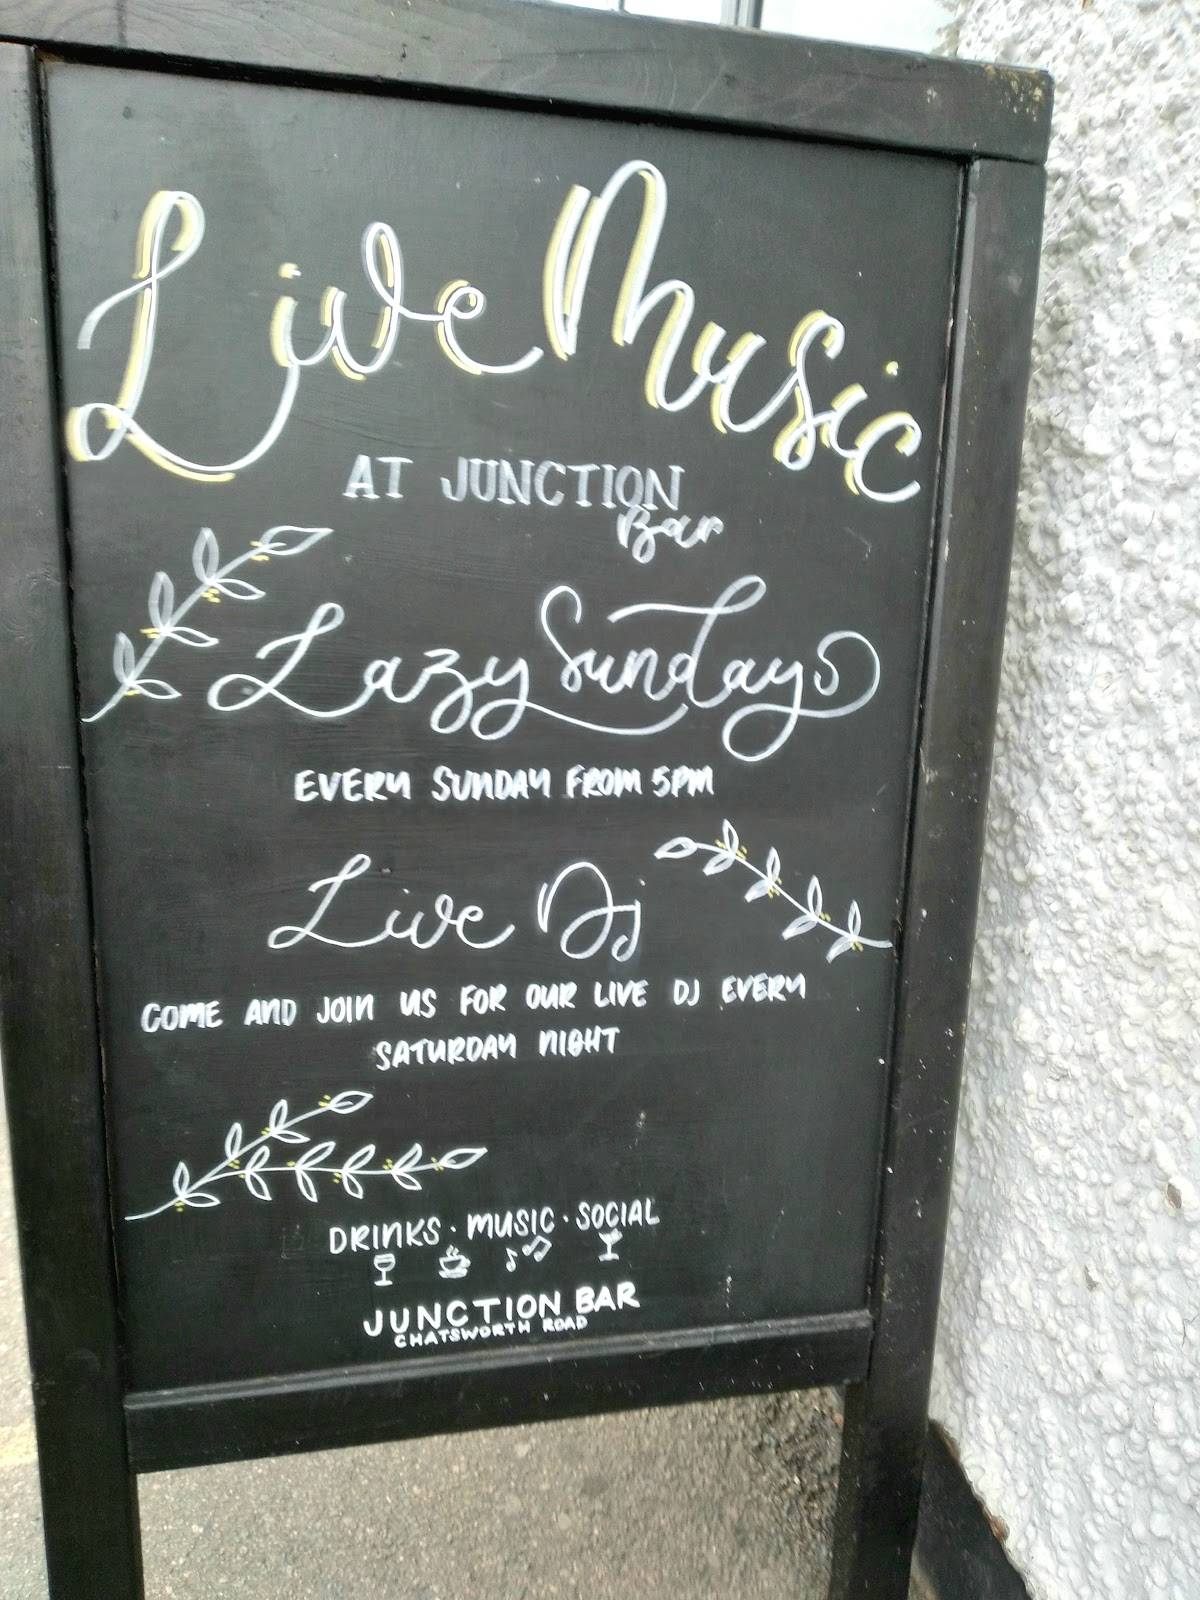 Live Music
AT JUNCTION
Bar
Lazy Sundays
EVERY SUNDAY FROM 5PM
Live Dj
COME AND JOIN US FOR OUR LIVE DJ EVERY
SATURDAY NIGHT
DRINKS · MUSIC · SOCIAL
JUNCTION BAR
CHATSWORTH ROAD